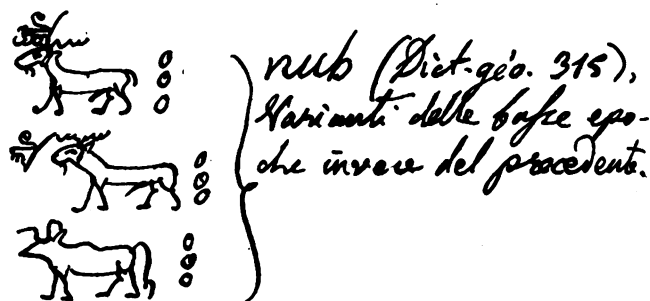 nub (Dict. géo. 315),
Varianti delle basse epo-
che invece del precedente.